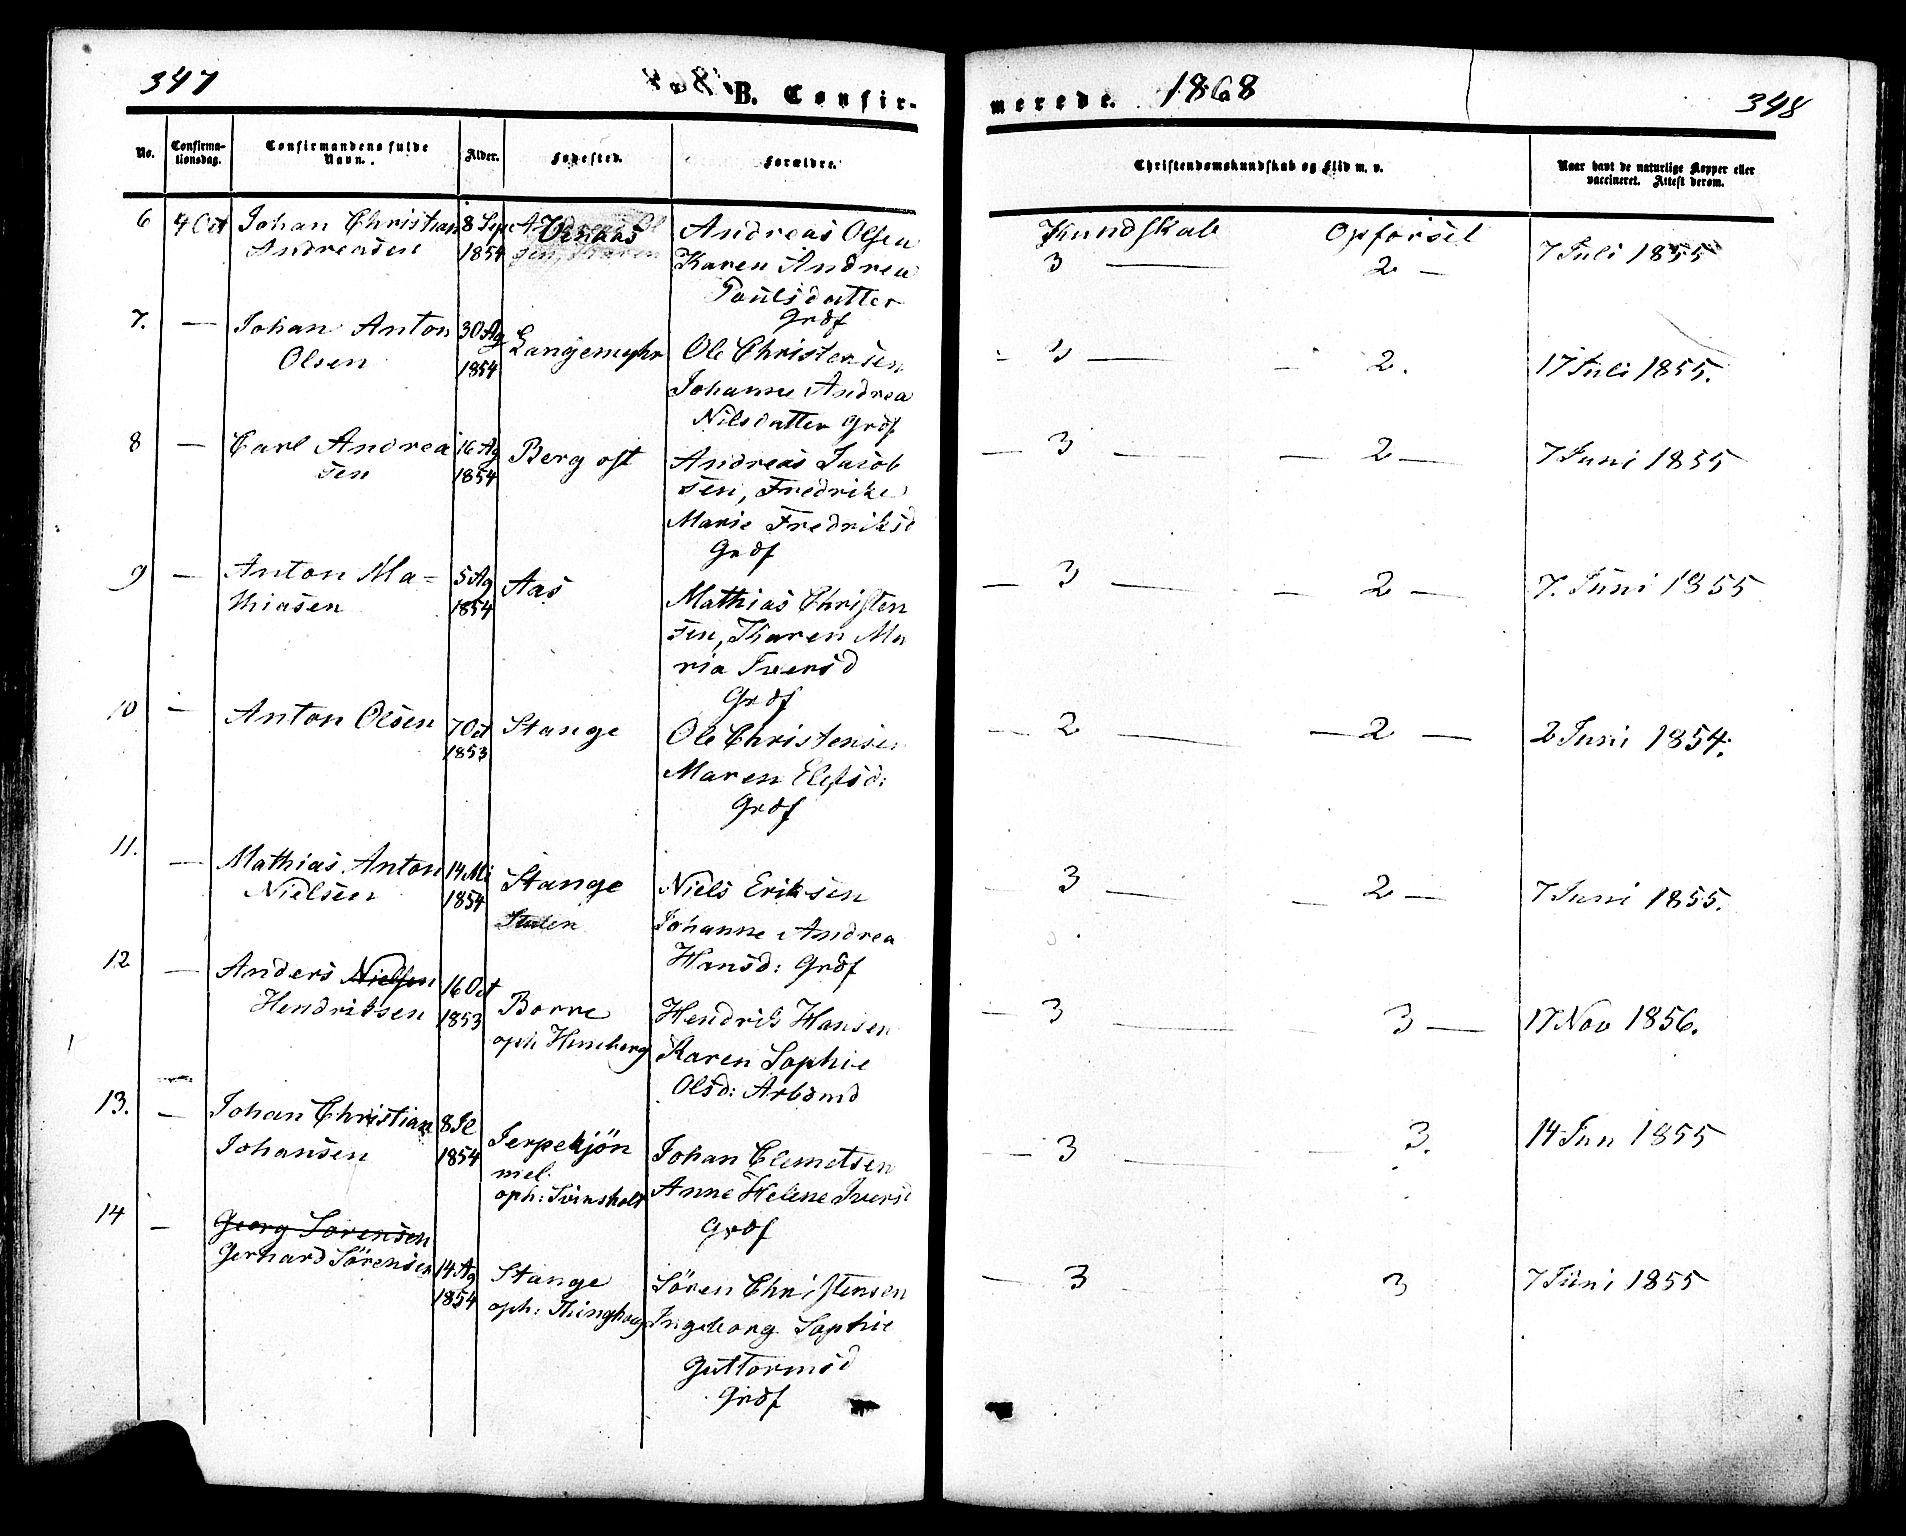 347
B. Confir-
merede. 1868
348
No.
Confirma-
tionsdag.
Confirmandens fulde
Navn.
Alder.
Fødested.
Forældre.
Christendomskundskab og Flid m. v.
Naar havt de naturlige Kopper eller
vaccineret. Attest derom.
6 4 Oct Johan Christian 8 Sep Vindaas Andreas Olsen Kundskab Opførsel 7 Juli 1855
Andreasen 1854 Karen Andrea 3 — 2 —
Poulsdatter
Grdf
7. — Johan Anton 30 Ag Langemyhr Ole Christensen — 3 — — 2. 17 Juli 1855.
Olsen 1854 Johanne Andrea
Nilsdatter Grdf
8 — Carl Andrea 16 Ag Berg øst Andreas Jacob — 3 — — 2 — 7 Juni 1855
sen 1854 sen, Fredrike
Marie Fredriksd
Grdf
9 — Anton Ma= 5 Ag Aas Mathias Christen — 3 — — 2 — 7. Juni 1855
thiasen 1854 sen, Karen Ma
ria Iversd
Grdf
10 — Anton Olsen 7 Oct Stange Ole Christensen — 2 — — 2 — 2 Juni 1854.
1853 Maren Elefsd:
Grdf
11. — Mathias Anton 14 Mi Stange Niels Eriksen — 3 — — 2 — 7 Juni 1855.
Nielsen 1854 Johanne Andrea
Hansd: Grdf
12 — Anders Nielsen 16 Oct Borre Hendrik Hansen — 3 — 3 — 17 Nov 1856.
Hendriksen 1853 oph: Huneberg Karen Sophie
Olsd: Arbsmd
13. — Johan Christian 8 Jl Jerpekjön Johan Clemetsen — 3 — — 3. 14 Jun 1855
Johansen 1854 niel. Anne Helene Iversd
oph: Svinsholt Grdf
14 — Georg Sørensen
Gerhard Sörensen 14 Ag Stange Sören Christensen — 3 — 3 7 Juni 1855
1854 oph: Thinghoug Ingeborg Sophie
Guttormsd
Grdf